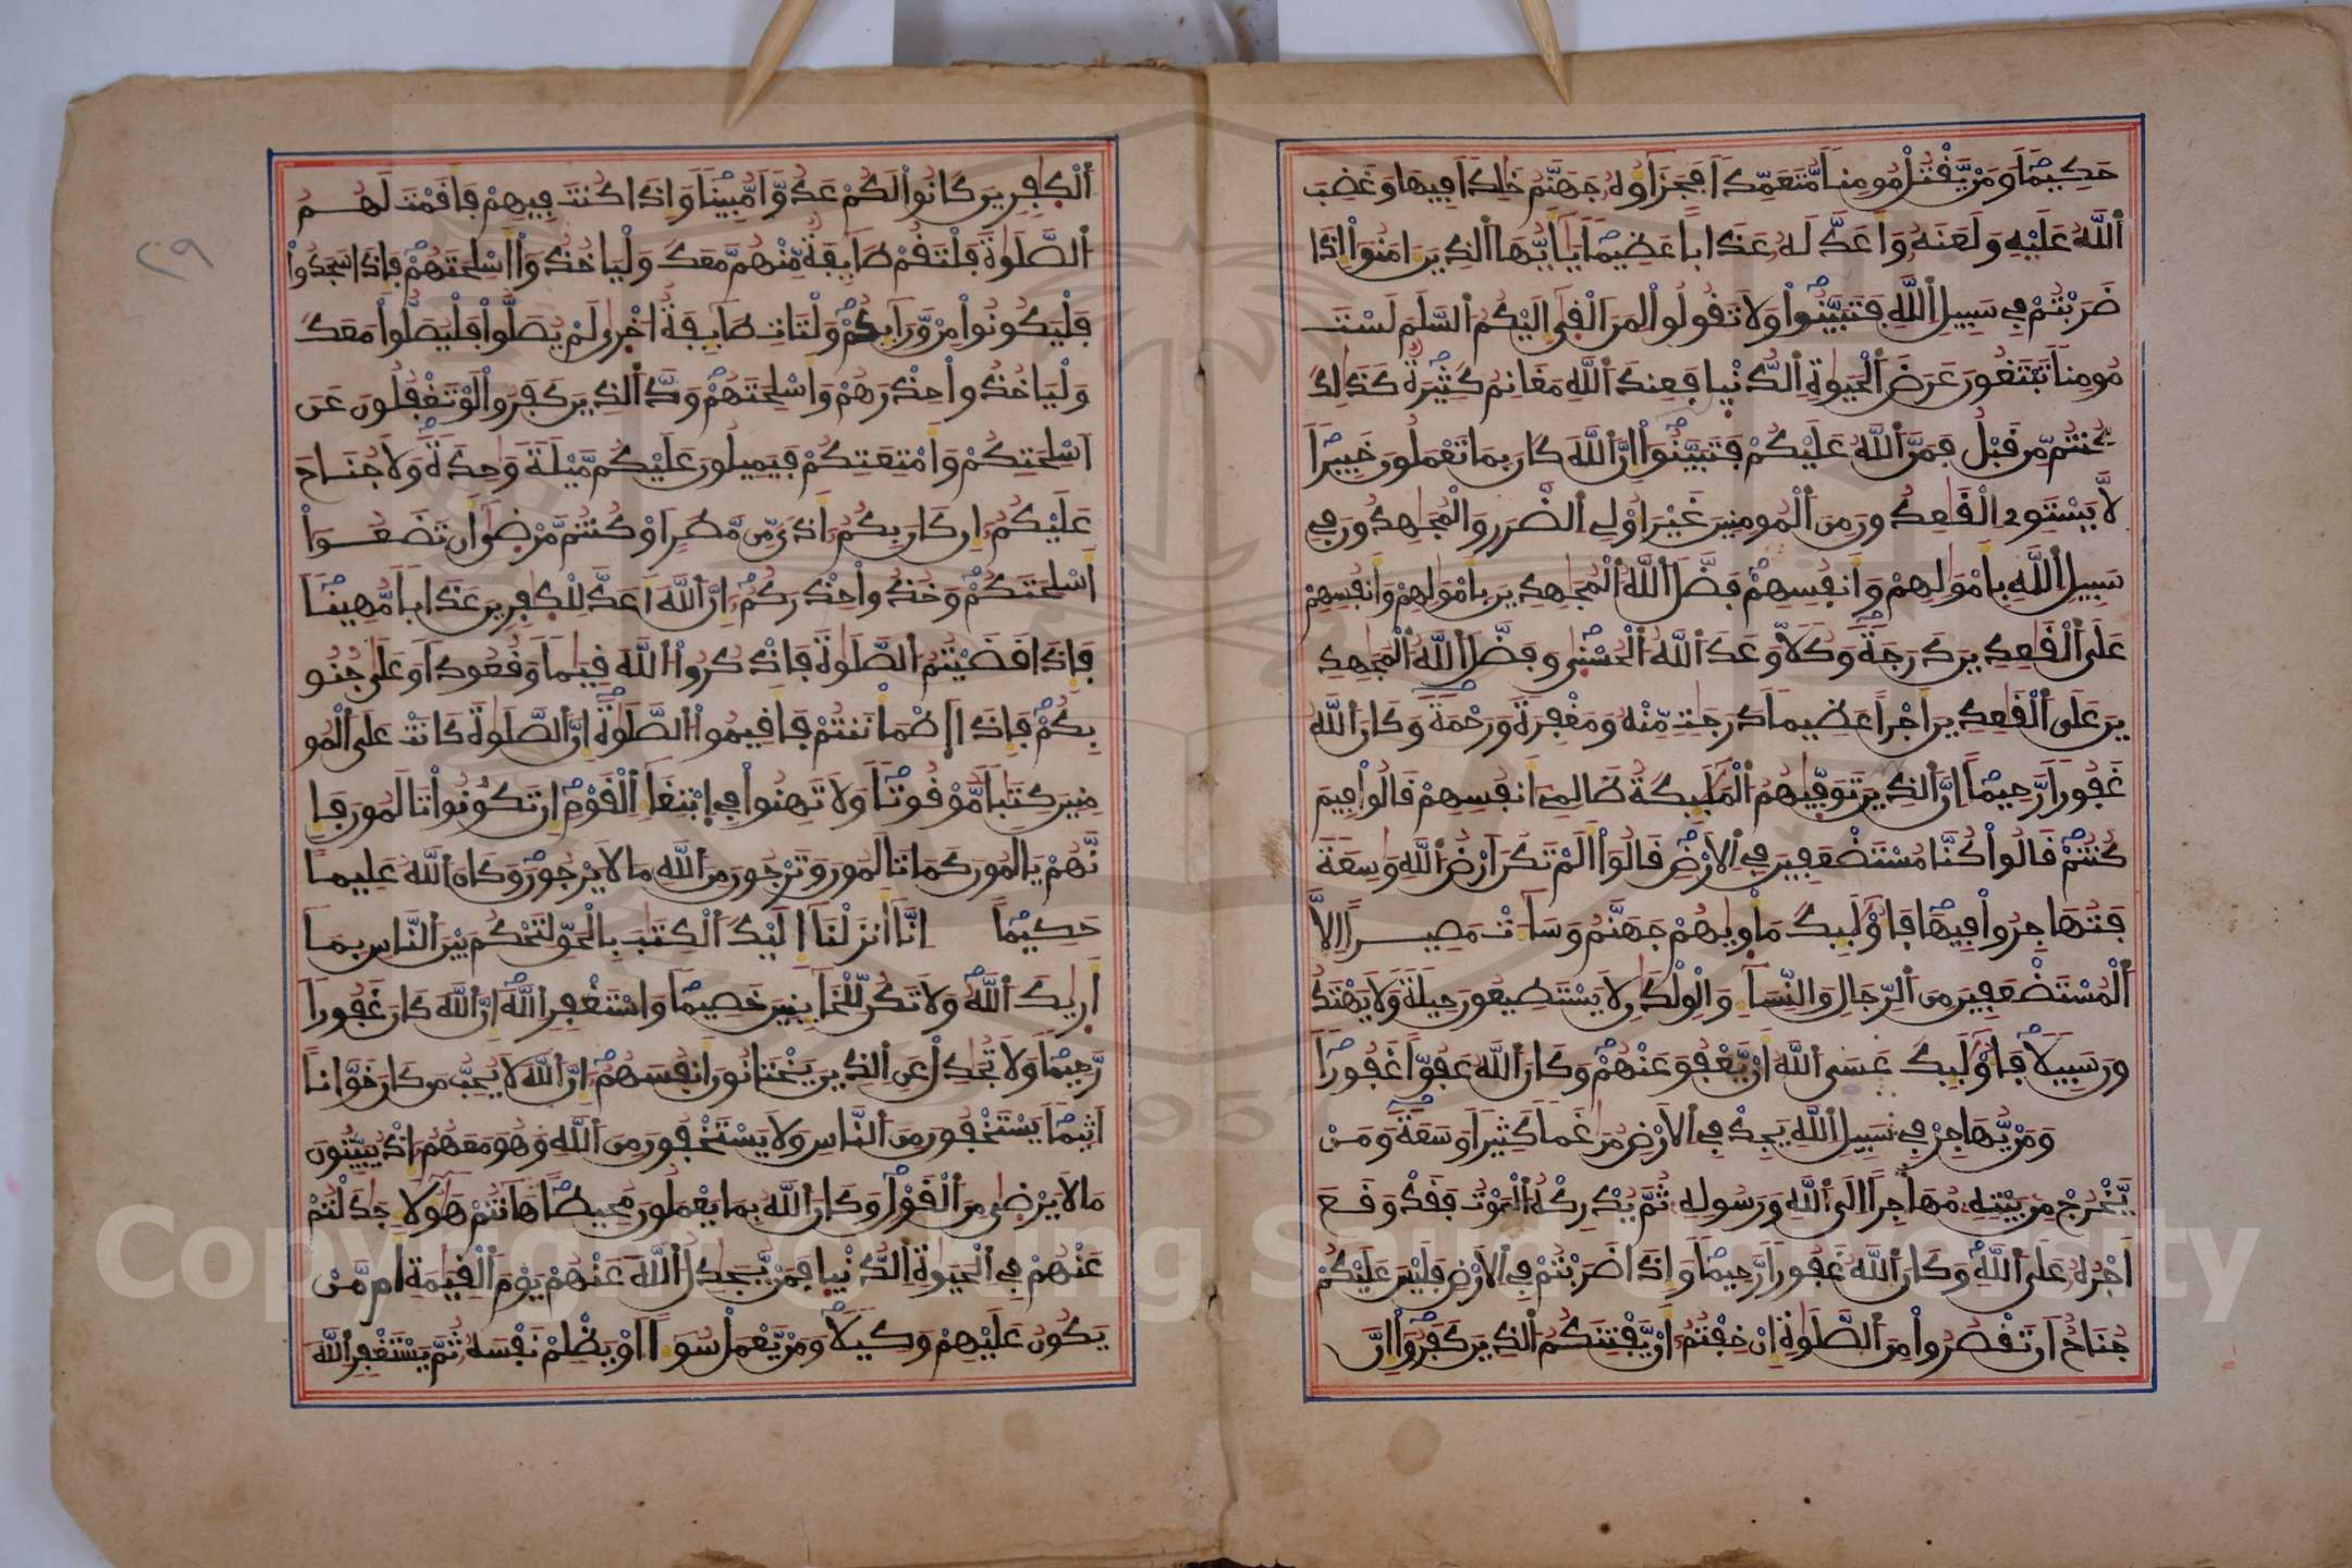 حَكِيمًا وَمَنْ يَّقْتُلْ مُومِنًا مُّتَعَمِّدًا فَجَزَآؤُهُ جَهَنَّمُ خَٰلِدًا فِيهَا وَغَضِبَ
اَ۬للَّهُ عَلَيْهِ وَلَعَنَهُ وَأَعَدَّ لَهُ عَذَابًا عَظِيمًا يَٰٓأَيُّهَا اَ۬لذِينَ ءَامَنُوٓاْ إِذَا
ضَرَبْتُمْ فِي سَبِيلِ اِ۬للَّهِ فَتَبَيَّنُواْ وَلَا تَقُولُواْ لِمَنَ اَلْقَىٰٓ إِلَيْكُمُ اُ۬لسَّلَمَ لَسْتَ
مُومِنًا تَبْتَغُونَ عَرَضَ اَ۬لْحَيَوٰةِ اِ۬لدُّنْيَا فَعِندَ اَ۬للَّهِ مَغَانِمُ كَثِيرَةٌ كَذَٰلِكَ
كُنتُم مِّن قَبْلُ فَمَنَّ اَ۬للَّهُ عَلَيْكُمْ فَتَبَيَّنُوٓاْ إِنَّ اَ۬للَّهَ كَانَ بِمَا تَعْمَلُونَ خَبِيرًا
لَّا يَسْتَوِي اِ۬لْقَٰعِدُونَ مِنَ اَ۬لْمُومِنِينَ غَيْرَ أُوْلِي اِ۬لضَّرَرِ وَالْمُجَٰهِدُونَ فِي
سَبِيلِ اِ۬للَّهِ بِأَمْوَٰلِهِمْ وَأَنفُسِهِمْ فَضَّلَ اَ۬للَّهُ اُ۬لْمُجَٰهِدِينَ بِأَمْوَٰلِهِمْ وَأَنفُسِهِمْ
عَلَى اَ۬لْقَٰعِدِينَ دَرَجَةً وَكُلًّا وَعَدَ اَ۬للَّهُ اُ۬لْحُسْنَىٰ وَفَضَّلَ اَ۬للَّهُ اُ۬لْمُجَٰهِدِ
ينَ عَلَى اَ۬لْقَٰعِدِينَ أَجْرًا عَظِيمًا دَرَجَٰتٍ مِّنْهُ وَمَغْفِرَةً وَرَحْمَةً وَكَانَ اَ۬للَّهُ
غَفُورًا رَّحِيمًا إِنَّ اَ۬لذِينَ تَوَفَّىٰهُمُ اُ۬لْمَلَٰٓئِكَةُ ظَالِمِےٓ أَنفُسِهِمْ قَالُواْ فِيمَ
كُنتُمْ قَالُواْ كُنَّا مُسْتَضْعَفِينَ فِي اِ۬لَارْضِ قَالُوٓاْ أَلَمْ تَكُنَ اَرْضُ اُ۬للَّهِ وَٰسِعَةً
فَتُهَاجِرُواْ فِيهَا فَأُوْلَٰٓئِكَ مَأْوَىٰهُمْ جَهَنَّمُ وَسَآءَتْ مَصِيرًا اِلَّا
اَ۬لْمُسْتَضْعَفِينَ مِنَ اَ۬لرِّجَالِ وَالنِّسَآءِ وَالْوِلْدَٰنِ لَا يَسْتَطِيعُونَ حِيلَةً وَلَا يَهْتَدُ
ونَ سَبِيلًا فَأُوْلَٰٓئِكَ عَسَى اَ۬للَّهُ أَنْ يَّعْفُوَ عَنْهُمْ وَكَانَ اَ۬للَّهُ عَفُوًّا غَفُورًا
وَمَنْ يُّهَاجِرْ فِي سَبِيلِ اِ۬للَّهِ يَجِدْ فِي اِ۬لَارْضِ مُرَٰغَمًا كَثِيرًا وَسَعَةً وَمَنْ
يَّخْرُجْ مِنۢ بَيْتِهِ مُهَاجِرًا اِلَى اَ۬للَّهِ وَرَسُولِهِ ثُمَّ يُدْرِكْهُ اُ۬لْمَوْتُ فَقَدْ وَقَعَ
أَجْرُهُ عَلَى اَ۬للَّهِ وَكَانَ اَ۬للَّهُ غَفُورًا رَّحِيمًا وَإِذَا ضَرَبْتُمْ فِي اِ۬لَارْضِ فَلَيْسَ عَلَيْكُمْ
جُنَاحٌ اَن تَقْصُرُواْ مِنَ اَ۬لصَّلَوٰةِ إِنْ خِفْتُمُ أَنْ يَّفْتِنَكُمُ اُ۬لذِينَ كَفَرُوٓاْ إِنَّ
اَ۬لْكَٰفِرِينَ كَانُواْ لَكُمْ عَدُوًّا مُّبِينًا وَإِذَا كُنتَ فِيهِمْ فَأَقَمْتَ لَهُمُ
اُ۬لصَّلَوٰةَ فَلْتَقُمْ طَآئِفَةٌ مِّنْهُم مَّعَكَ وَلْيَاخُذُوٓاْ أَسْلِحَتَهُمْ فَإِذَا سَجَدُواْ
فَلْيَكُونُواْ مِنْ وَّرَآئِكُمْ وَلْتَاتِ طَآئِفَةٌ اُخْرَىٰ لَمْ يُصَلُّواْ فَلْيُصَلُّواْ مَعَكَ
وَلْيَاخُذُواْ حِذْرَهُمْ وَأَسْلِحَتَهُمْ وَدَّ اَ۬لذِينَ كَفَرُواْ لَوْ تَغْفُلُونَ عَنَ
اَسْلِحَتِكُمْ وَأَمْتِعَتِكُمْ فَيَمِيلُونَ عَلَيْكُم مَّيْلَةً وَٰحِدَةً وَلَا جُنَاحَ
عَلَيْكُمُ إِن كَانَ بِكُمُ أَذًى مِّن مَّطَرٍ اَوْ كُنتُم مَّرْضَىٰٓ أَن تَضَعُوٓاْ
أَسْلِحَتَكُمْ وَخُذُواْ حِذْرَكُمُ إِنَّ اَ۬للَّهَ أَعَدَّ لِلْكَٰفِرِينَ عَذَابًا مُّهِينًا
فَإِذَا قَضَيْتُمُ اُ۬لصَّلَوٰةَ فَاذْكُرُواْ اُ۬للَّهَ قِيَٰمًا وَقُعُودًا وَعَلَىٰ جُنُو
بِكُمْ فَإِذَا اَ۪طْمَأْنَنتُمْ فَأَقِيمُواْ اُ۬لصَّلَوٰةَ إِنَّ اَ۬لصَّلَوٰةَ كَانَتْ عَلَى اَ۬لْمُو
مِنِينَ كِتَٰبًا مَّوْقُوتًا وَلَا تَهِنُواْ فِي اِ۪بْتِغَآءِ اِ۬لْقَوْمِ إِن تَكُونُواْ تَالَمُونَ فَإِ
نَّهُمْ يَالَمُونَ كَمَا تَالَمُونَ وَتَرْجُونَ مِنَ اَ۬للَّهِ مَا لَا يَرْجُونَ وَكَانَ اَ۬للَّهُ عَلِيمًا
حَكِيمًا إِنَّآ أَنزَلْنَآ إِلَيْكَ اَ۬لْكِتَٰبَ بِالْحَقِّ لِتَحْكُمَ بَيْنَ اَ۬لنَّاسِ بِمَآ
أَرَىٰكَ اَ۬للَّهُ وَلَا تَكُن لِّلْخَآئِنِينَ خَصِيمًا وَاسْتَغْفِرِ اِ۬للَّهَ إِنَّ اَ۬للَّهَ كَانَ غَفُورًا
رَّحِيمًا وَلَا تُجَٰدِلْ عَنِ اِ۬لذِينَ يَخْتَانُونَ أَنفُسَهُمُ إِنَّ اَ۬للَّهَ لَا يُحِبُّ مَن كَانَ خَوَّانًا
اَثِيمًا يَسْتَخْفُونَ مِنَ اَ۬لنَّاسِ وَلَا يَسْتَخْفُونَ مِنَ اَ۬للَّهِ وَهُوَ مَعَهُمُ إِذْ يُبَيِّتُونَ
مَا لَا يَرْضَىٰ مِنَ اَ۬لْقَوْلِ وَكَانَ اَ۬للَّهُ بِمَا يَعْمَلُونَ مُحِيطًا هَٰٓأَنتُمْ هَٰٓؤُلَآءِ جَٰدَلْتُمْ
عَنْهُمْ فِي اِ۬لْحَيَوٰةِ اِ۬لدُّنْيَا فَمَنْ يُّجَٰدِلُ اُ۬للَّهَ عَنْهُمْ يَوْمَ اَ۬لْقِيَٰمَةِ أَم مَّنْ
يَكُونُ عَلَيْهِمْ وَكِيلًا وَمَنْ يَّعْمَلْ سُوٓءًا اَوْ يَظْلِمْ نَفْسَهُ ثُمَّ يَسْتَغْفِرِ اِ۬للَّهَ
٢٩
Copyright © King Saud University
1957